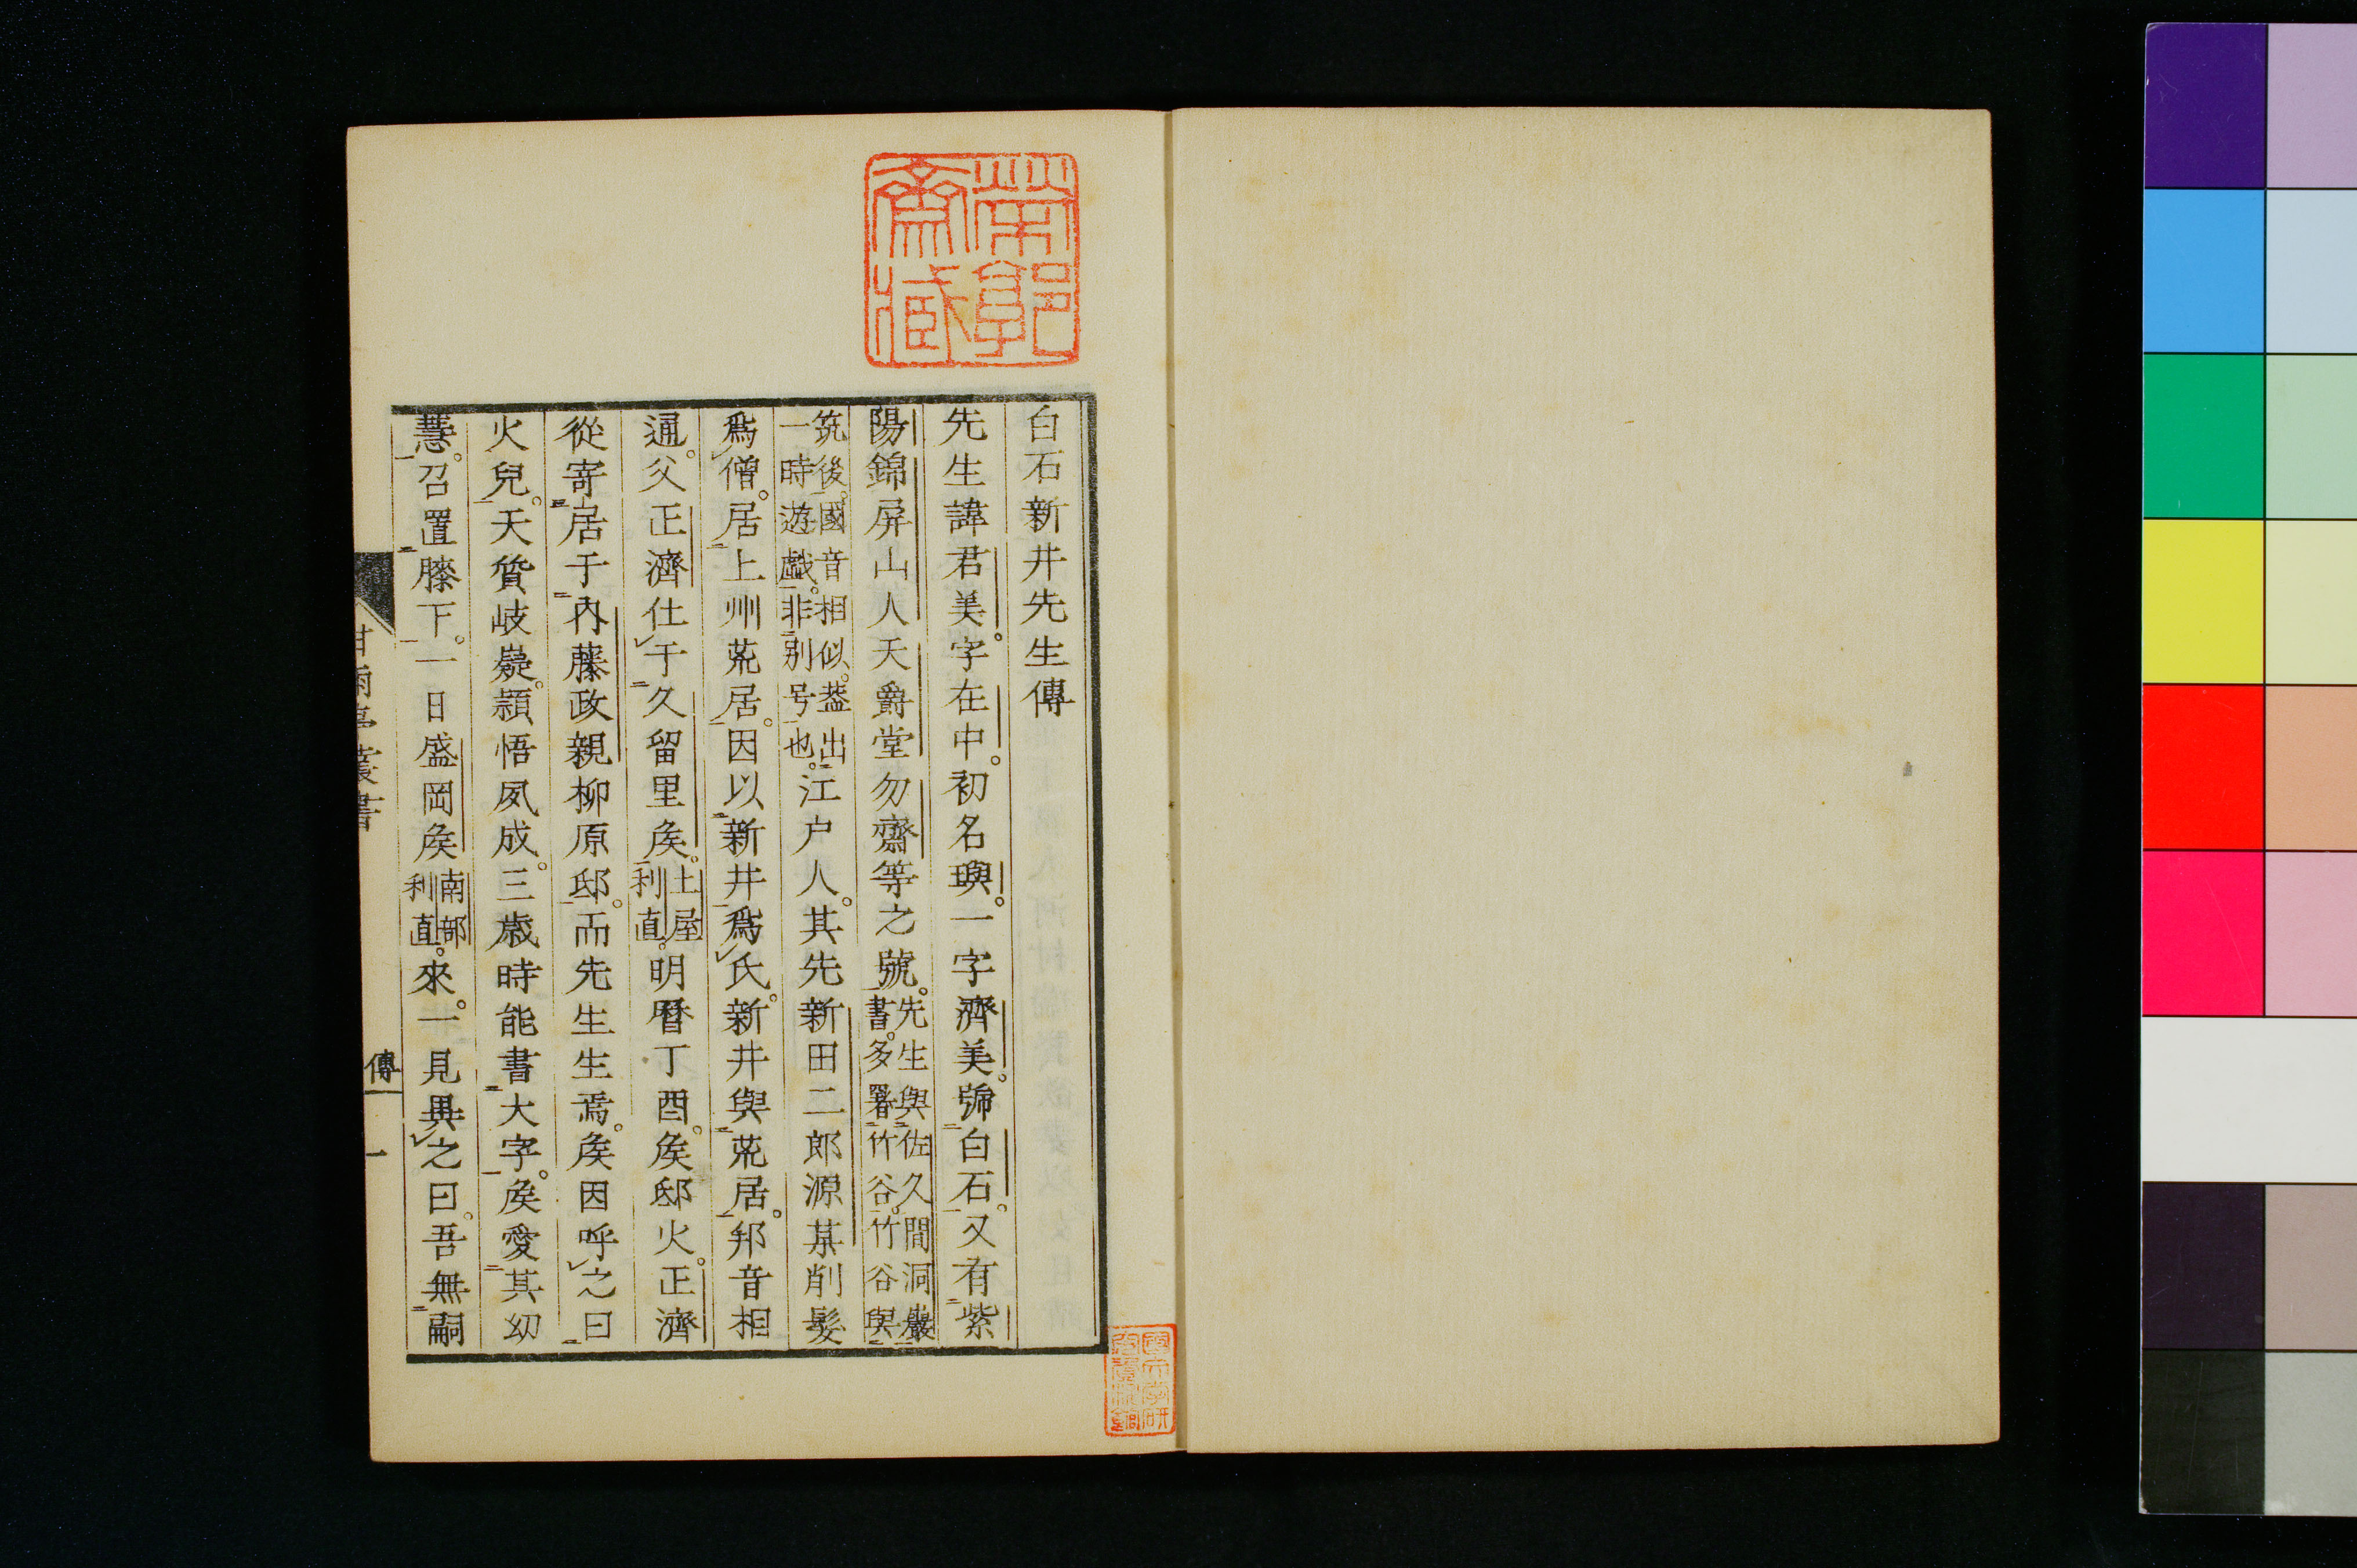 白石新井先生傳
先生諱君美。字在中。初名璵。一字濟美。號白石。又有紫
陽錦屏山人天爵堂勿齋等之號。先生與佐久間洞巖書。多署竹谷。竹谷與
筑後。國音相似。葢出一時遊戯。非別号也。江户人。其先新田二郎源某削髮
爲僧。居上州荒居。因以新井爲氏。新井與荒居。邦音相
通。父正濟仕于久留里矦。土屋利直。明曆丁酉。矦邸火。正濟
從寄居于内藤政親柳原邸。而先生生焉。矦因呼之曰
火兒。天質岐嶷。頴悟夙成。三歳時能書大字。矦愛其幼
慧。召置膝下。一日盛岡矦南部利直。來。一見異之曰。吾無嗣
甘雨亭叢書
傳
一